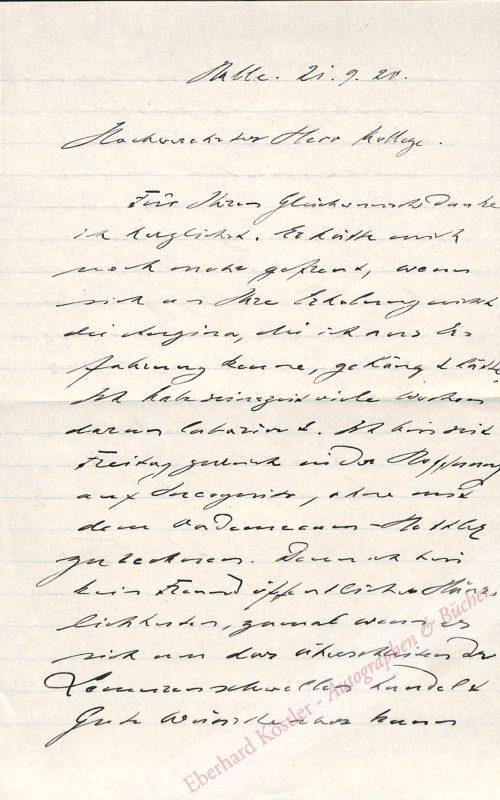 Halle. 21.9.20.
Hochverehrter Herr Kollege.
Für Ihren Glückwunsch danke
ich herzlichst. Es hätte mich
noch mehr gefreut, wenn
sich an Ihre Erholung nicht
die Angina, die ich aus Er-
fahrung kenne, gehängt hätte
Ich habe seinerzeit viele Wochen
daran laboriert. Ich bin seit
Freitag zurück in der Hoffnung
auf Incognito, ohne mit
dem
zu rechnen. Denn ich bin
kein Freund öffentlicher
lichkeiten, zumal wenn es
sich um das Überschreiten der
handelt
Gute Wünsche kann
Eberhard Köstler - Autographen & Bücher